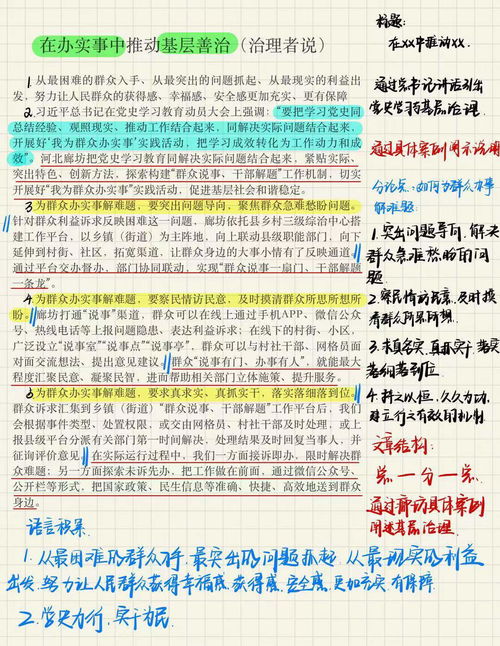 在办实事中推动基层善治（治理者说）
1 从最困难的群众入手、从最突出的问题抓起、从最现实的利益出
发，努力让人民群众的获得感、幸福感、安全感更加充实、更有保障
2.习近平总书记在党史学习教育动员大会上强调：“要把学习党史同
总结经验、观照现实、推动工作结合起来，同解决实际问题结合起来，
开展好‘我为群众办实事’实践活动，把学习成效转化为工作动力和成
效”。河北廊坊把党史学习教育同解决实际问题结合起来，紧贴实际、
突出特色、创新方法，探索构建“群众说事、干部解题”工作机制，切实
开展好“我为群众办实事”实践活动，促进基层社会和谐稳定。
3 为群众办实事解难题，要突出问题导向，聚焦群众急难愁盼问题。
针对群众利益诉求反映困难这一问题，廊坊依托县乡村三级综治中心搭
建工作平台，以乡镇（街道）为主阵地，向上联动县级职能部门，向下
延伸到村街、社区，拓宽渠道，让群众身边的大事小情有了反映通道
通过平台交办督办、部门协同联动，实现“群众说事一扇门、干部解题
一条龙”。
4 为群众办实事解难题，要察民情访民意，及时摸清群众所思所想所
盼。廊坊打通“说事”渠道，群众可以在线上通过手机APP、微信公众
号、热线电话等上报问题隐患、表达利益诉求；在线下的村街、小区，
广泛设立“说事室”“说事点”“说事亭”，群众可以与村社干部、网格员面
对面交流想法、提出意见建议 群众“说事有门、办事有人”，就能最大
程度汇聚民意、凝聚民智，进而帮助相关部门立体施策、提升服务。
5 为群众办实事解难题，要求真求实、真抓实干，落实落细落到位。
群众诉求汇集到乡镇（街道）“群众说事、干部解题”工作平台后，我们
会根据事件类型、处置权限，或交由网格员、村社干部及时处理，或上
报县级平台分派有关部门第一时间解决，处理结果及时回复当事人，并
征询评价意见 在实际运行过程中，我们一方面接诉即办，限时解决群
众难题；另一方面探索未诉先办，把工作做在前面，通过微信公众号、
公开栏等形式，把国家政策、民生信息等准确、快捷、高效地送到群众
身边。
标题：
在xx中推动xx.
通过总书记讲话引出
党史学习与基层治理.
通过具体案例用来说明
分论点：如何为群众办事
解难题：
1.突出问题导向，解决
群众急难愁盼的问
题
2.察民情访民意，及时摸
清群众所思所想
3.求真务实，真抓实干，落实
落细落到位
4.持之以恒，久久为功，
建立行之有效的机制
文章结构：
总一分一总
通过廊坊具体案例
阐述基层治理.
语言积累
1.从最困难的群众入手，最突出的问题抓起，从最现实的利益
出发，努力让人民群众获得幸福感，获得感，安全感，更加充实，有保障
2.学史力行，实干为民